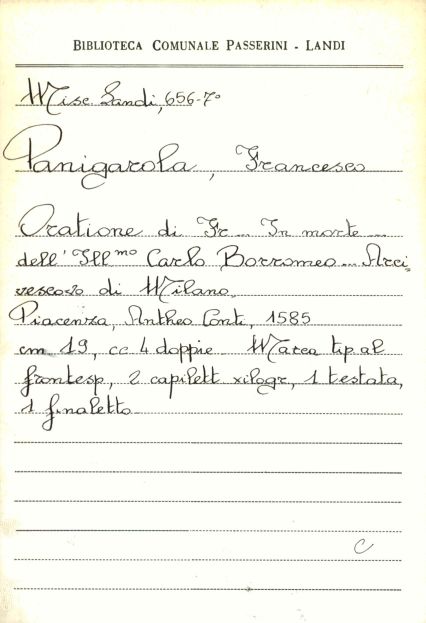 BIBLIOTECA COMUNALE PASSERINI - LANDI
Misc. Landi, 656-7º
Panigarola, Francesco
Oratione di Fr... In morte...
dell'Ill.mo Carlo Borromeo... Arci=
vescovo di Milano.
Piacenza, Antheo Conti, 1585
cm 19, cc 4 doppie Marca tip al
frontesp, 2 capilett xilogr, 1 testata,
1 finaletto
C